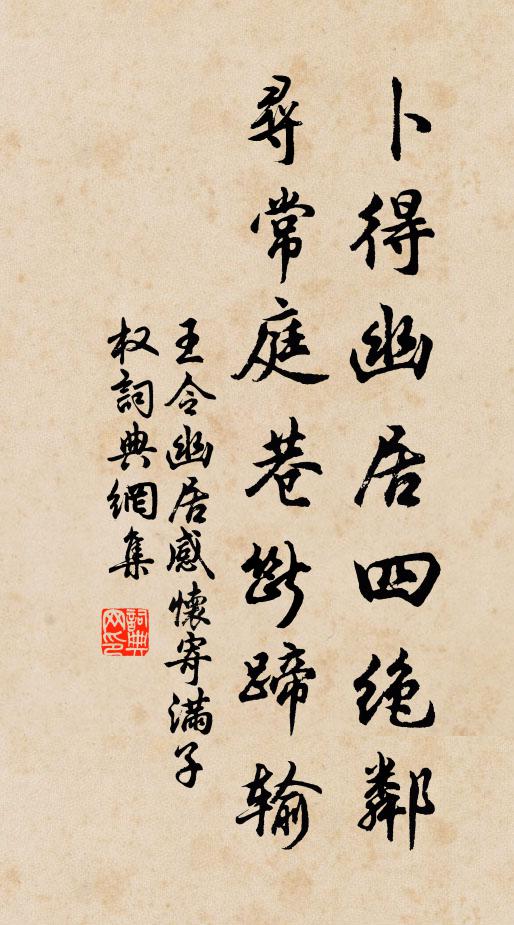 卜得幽居四绝鄰
尋常庭巷斷蹄输
王令幽居感懷寄滿子
权詞典網集
詞典
网印